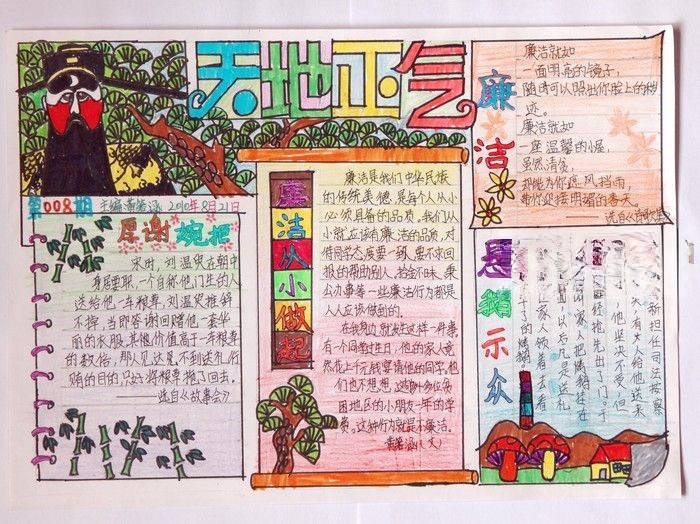 天地正气
第008期
主编 2010年8月21日
厚谢婉拒
宋时,刘温叟在朝中
身居要职,一个自称他门生的人
送给他一车粮草,刘温叟推辞
不掉,当即答谢回赠他一套华
丽的衣服,其他价值高于一车粮草
的数倍,那人见达不到送礼行
贿的目的只好将粮草拖了回去。
——选自《故事会》
廉洁从小做起
廉洁是我们中华民族
的传统美德,是每个人从小
必须具备的品质,我们从
小就应该有廉洁的品质,对
待同学态度要一致,要不求回
报的帮助别人,拾金不昧、秉
公办事等一些廉洁行为都是
人人应该做到的。
在我身边就发生这样一件事
有一个同学过生日,他的家人竟
然花上千元钱宴请他的同学,他
们也不想想,这够多少贫
困地区的小朋友一年的学
费。这种行为就是不廉洁。
廉洁
廉洁就如
一面明亮的镜子,
随时可以照出你脸上的
迹。
廉洁就如
一座温馨的小屋,
虽然清贫,
却能为你遮风挡雨,
带你迎接明媚的春天。
——选自
悬鹅示众
新担任司法按察
有人给他送来
他坚决不受,但
经抢先出了门。于
家人把烤鹅挂在
以后凡是送礼
家人领着去看
干了的烤鹅。